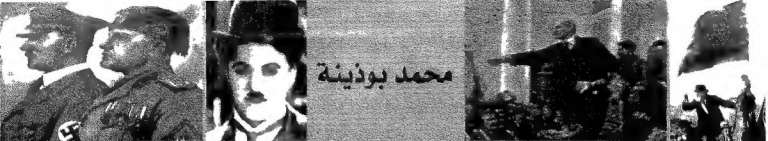 محمد بوذينة